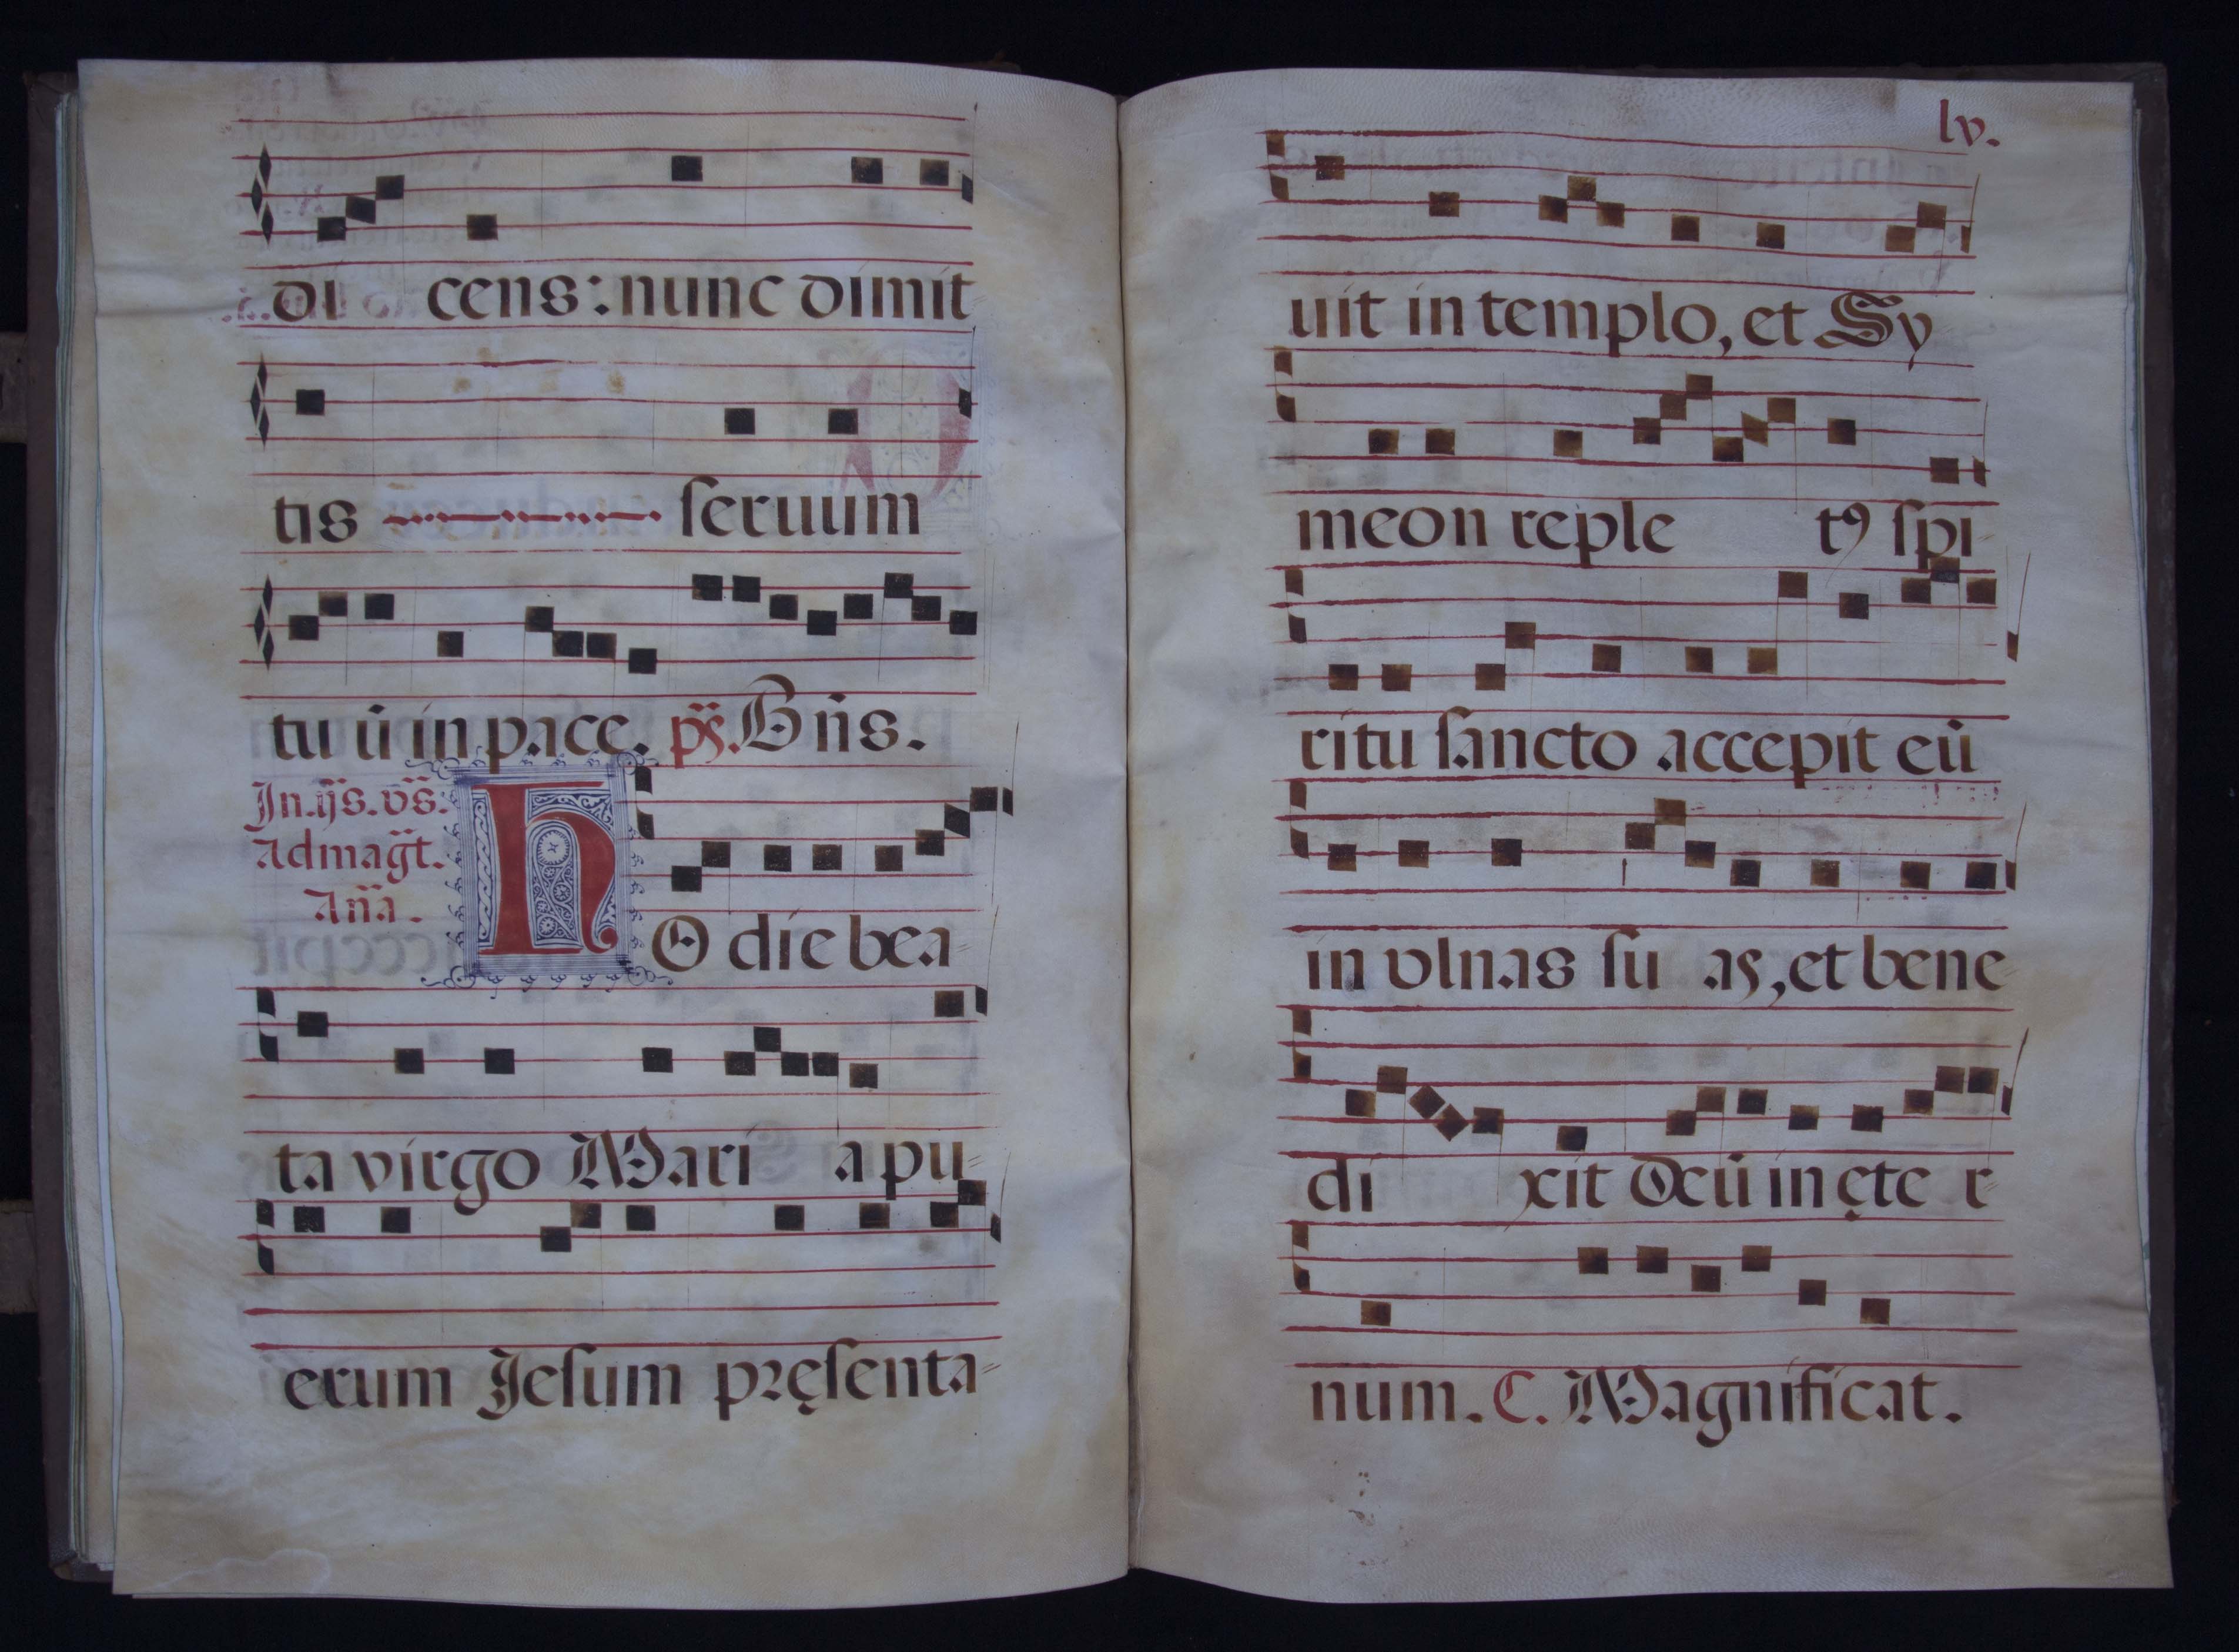 di cens: nunc dimit
tis seruum
tu ū in pace. ps̄. Bn̄s.
In.ijs.vs̄.
Admagt̄.
An̄a.
HO die bea
ta virgo Mari a pu
erum Jesum pręsenta
lv.
uit in templo, et Sy
meon reple tꝰ spi
ritu sancto accepit eū
in vlnas su as, et bene
di xit Deū in ęte r
num. C. Magnificat.